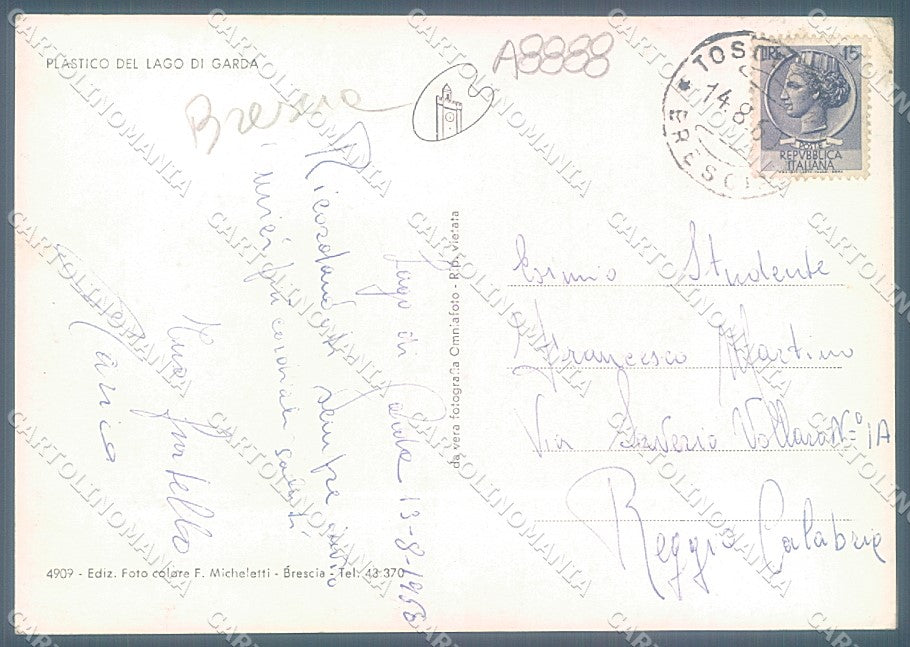 PLASTICO DEL LAGO DI GARDA
A8888
Brescia
TOSC
14.8.5
BRESCIA
LIRE 15
POSTE
REPVBBLICA
ITALIANA
Lago di Garda 13-8-195
Ricordandoti sempre invio
i miei più cordiali saluti
tuo fratello
Mario
da vera fotografia Omniafoto - Rip. vietata
Esimio Studente
Francesco Martino
Via Saverio Vollaro N° 1A
Reggio Calabria
4909 - Ediz. Foto colore F. Micheletti - Brescia - Tel. 43.370
CARTOLINOMANIA